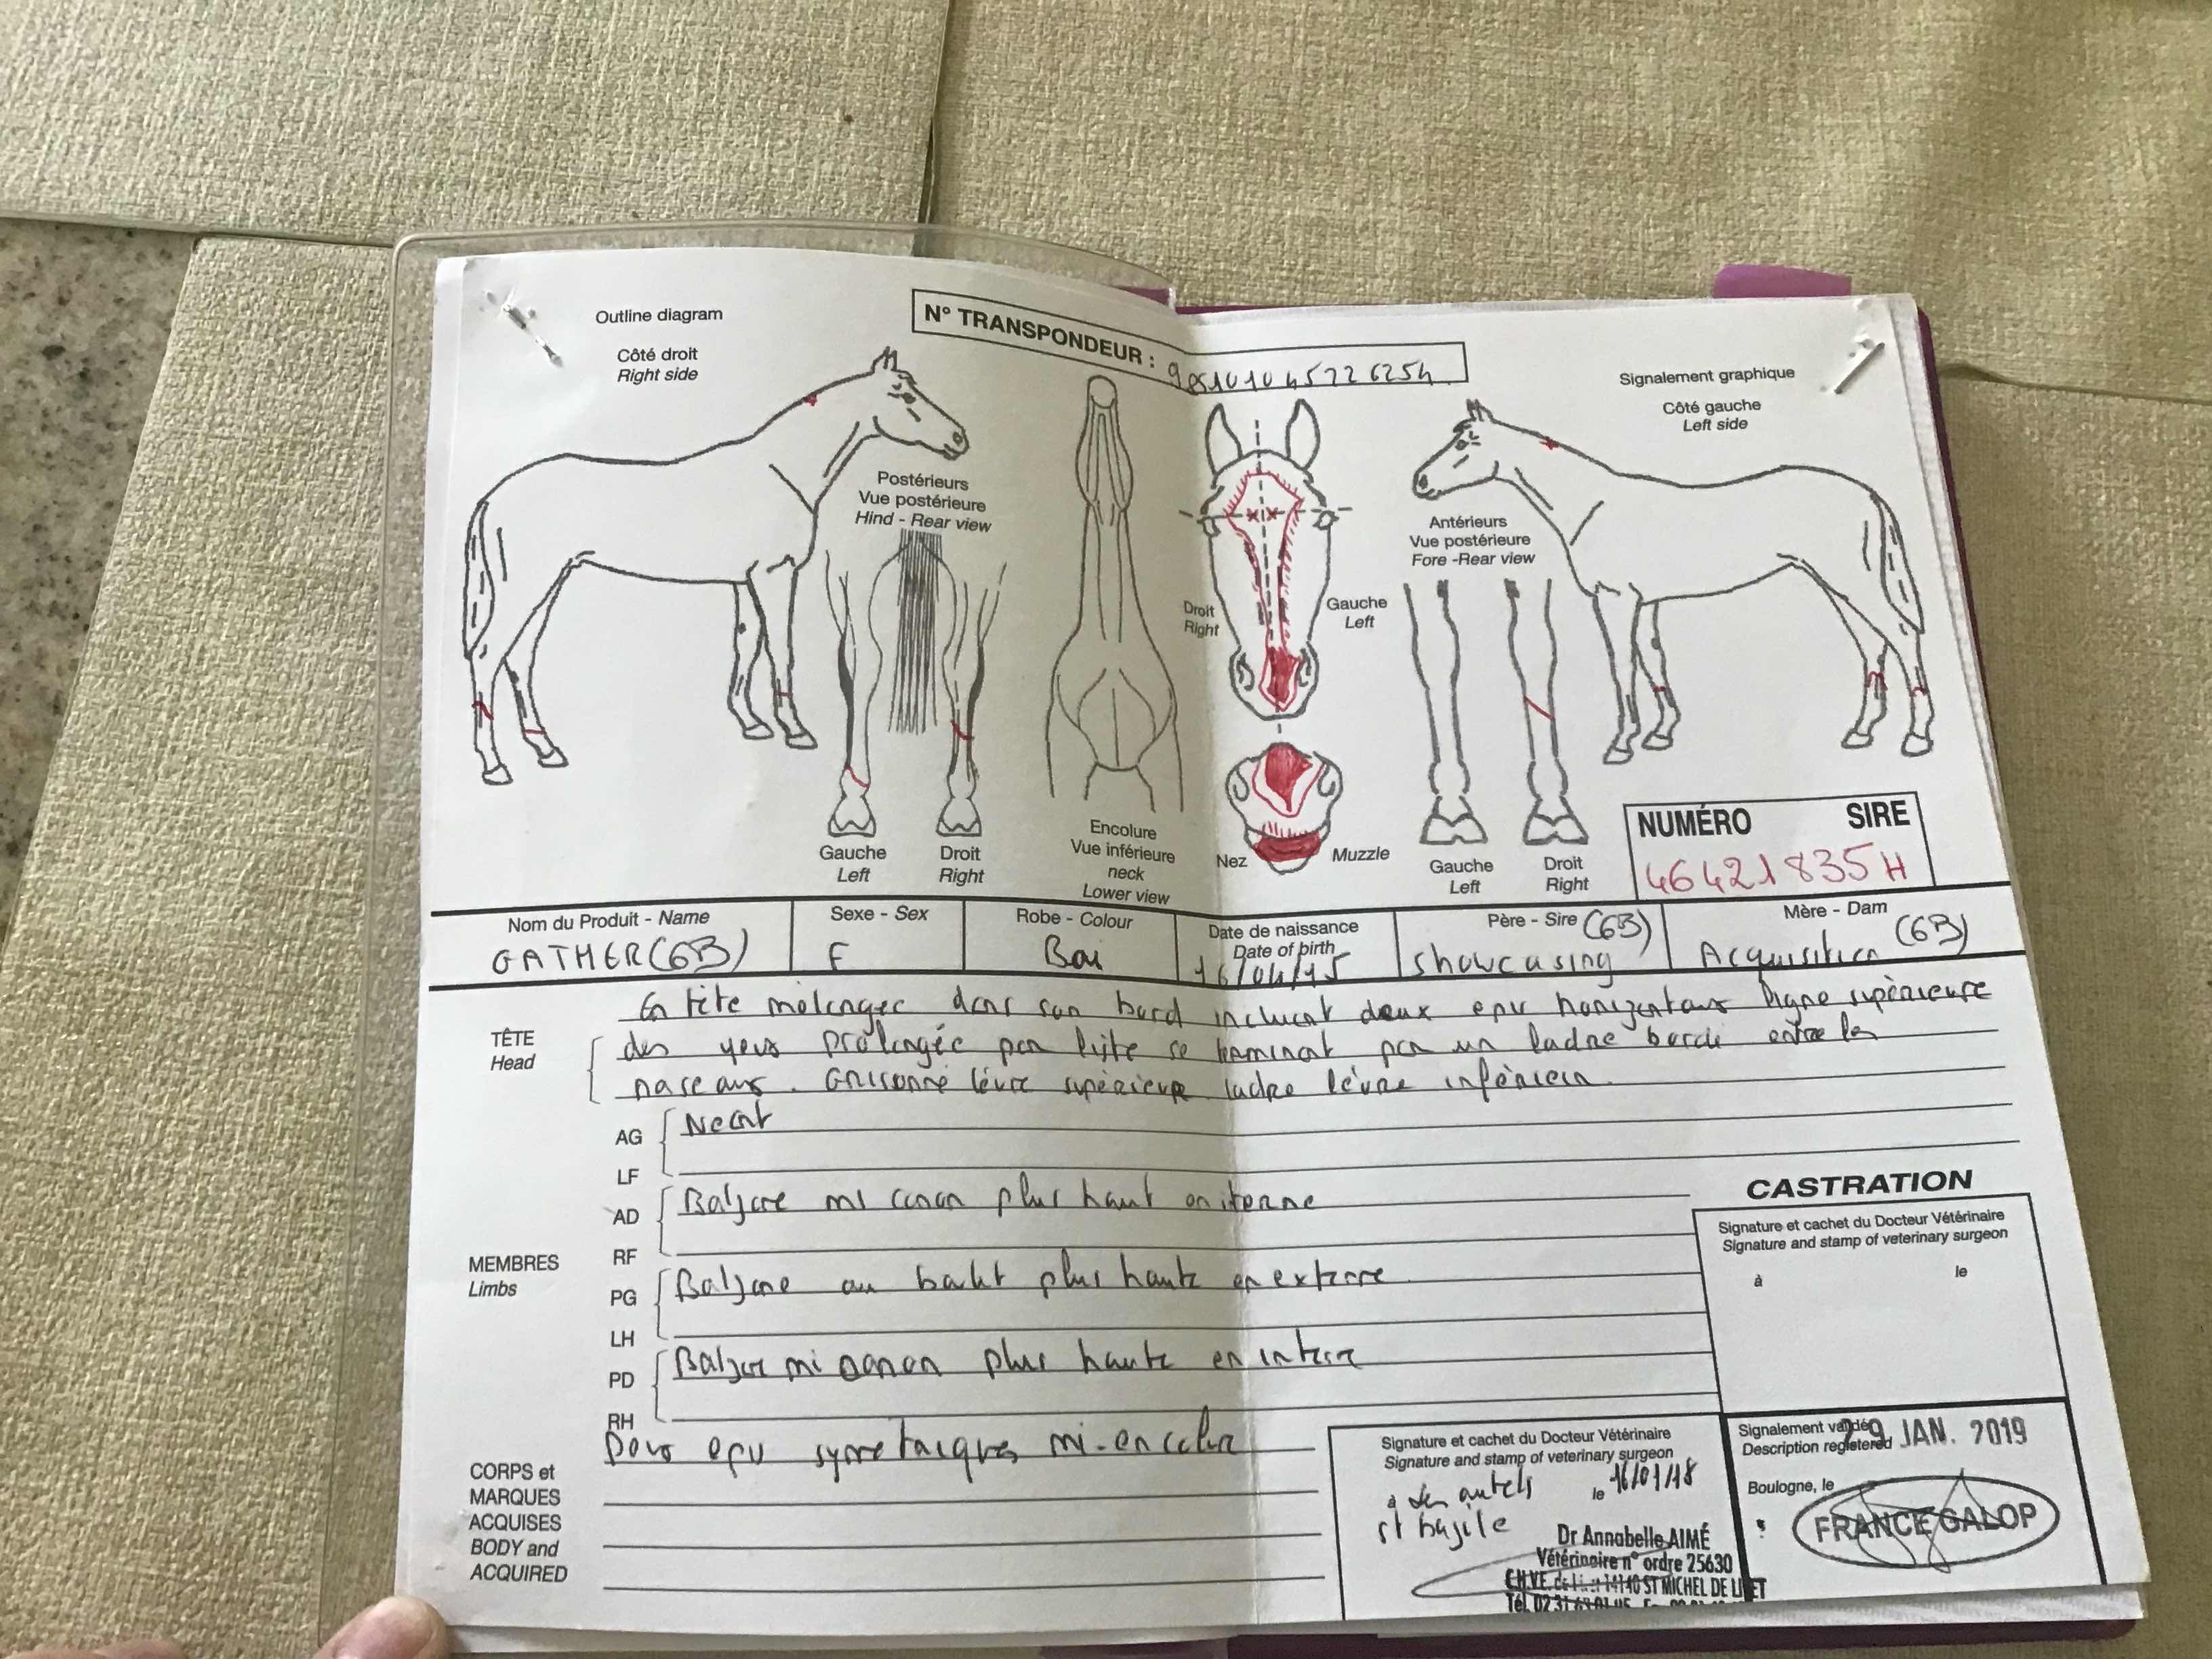 Outline diagram
Côté droit
Right side
N° TRANSPONDEUR :
Signalement graphique
Côté gauche
Left side
Postérieurs
Vue postérieure
Hind - Rear view
Antérieurs
Vue postérieure
Fore -Rear view
Droit
Right
Gauche
Left
Gauche
Left
Droit
Right
Encolure
Vue inférieure
neck
Lower view
Nez
Muzzle
Gauche
Left
Droit
Right
NUMÉRO SIRE
46421835H
Nom du Produit - Name
GATHER (GB)
Sexe - Sex
F
Robe - Colour
Bai
Date de naissance
Date of birth
16/04/15
Père - Sire (GB)
Showcasing
Mère - Dam (GB)
Acquisition
TÊTE
Head
En tête mélangée dans son bord incluant deux epis horizontaux ligne supérieure
des yeux prolongée par liste se terminant par un ladre bordé entre les
naseaux. Grisonné lèvre supérieure ladre lèvre
MEMBRES
Limbs
AG
LF
Neant
AD
RF
Balzane mi canon plus haut en interne
PG
LH
Balzane au boulet plus haute en externe
PD
RH
Balzane mi canon plus haute en interne
CORPS et
MARQUES
ACQUISES
BODY and
ACQUIRED
epis mi-encolure
CASTRATION
Signature et cachet du Docteur Vétérinaire
Signature and stamp of veterinary surgeon
à le
Signature et cachet du Docteur Vétérinaire
Signature and stamp of veterinary surgeon
à Les autels le 16/01/18
st bazile
Dr Annabelle AIMÉ
Vétérinaire n° ordre 25630
14140 ST MICHEL DE LIVET
Signalement validé
Description registered
29 JAN. 2019
Boulogne, le
FRANCE GALOP